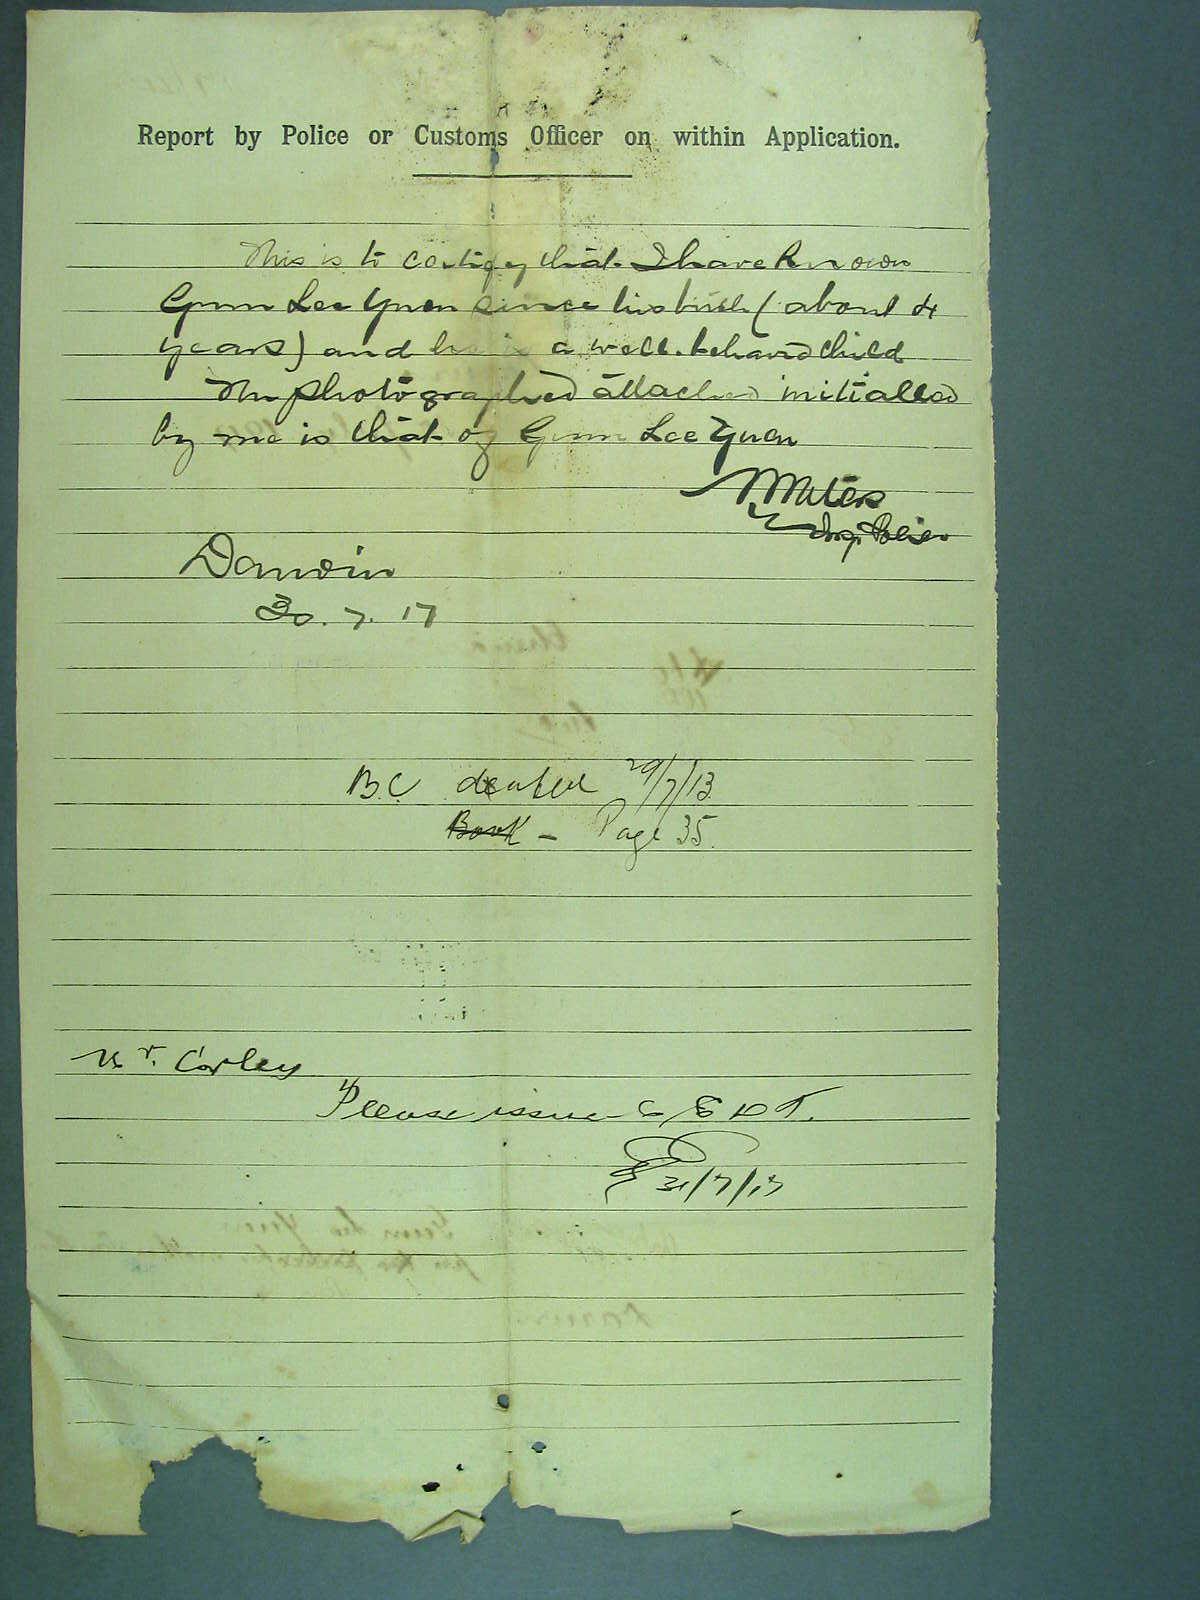 Report by Police or Customs Officer on within Application.
This is to certify that I have known
Gum Lee Yuen since his birth (about 4
years) and he is a well behaved child
The photographed attached initialled
by me is that of Gum Lee Yuen
Waters
Insp Police
Darwin
30.7.17
B.C dated 29/7/13
Book - Page 35
Mr. Corley
Please issue C E D T.
31/7/17